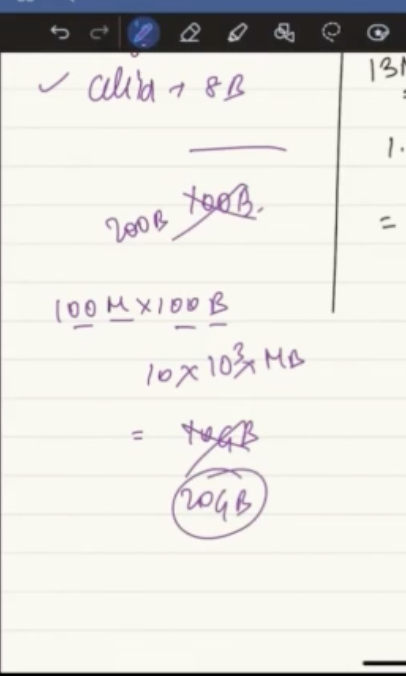 → 8B
200B 100B.
100 M × 100 B
10 × 10³ × MB
= 10GB
20GB
13
1.
=